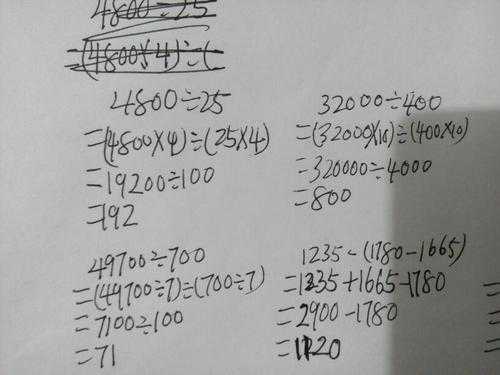 4800÷25
=(4800×4)÷(
4800÷25
=(4800×4)÷(25×4)
=19200÷100
=192
32000÷400
=(32000×10)÷(400×10)
=320000÷4000
=800
49700÷700
=(49700÷7)÷(700÷7)
=7100÷100
=71
1235-(1780-1665)
=1235+1665-1780
=2900-1780
=1120
=
=
=